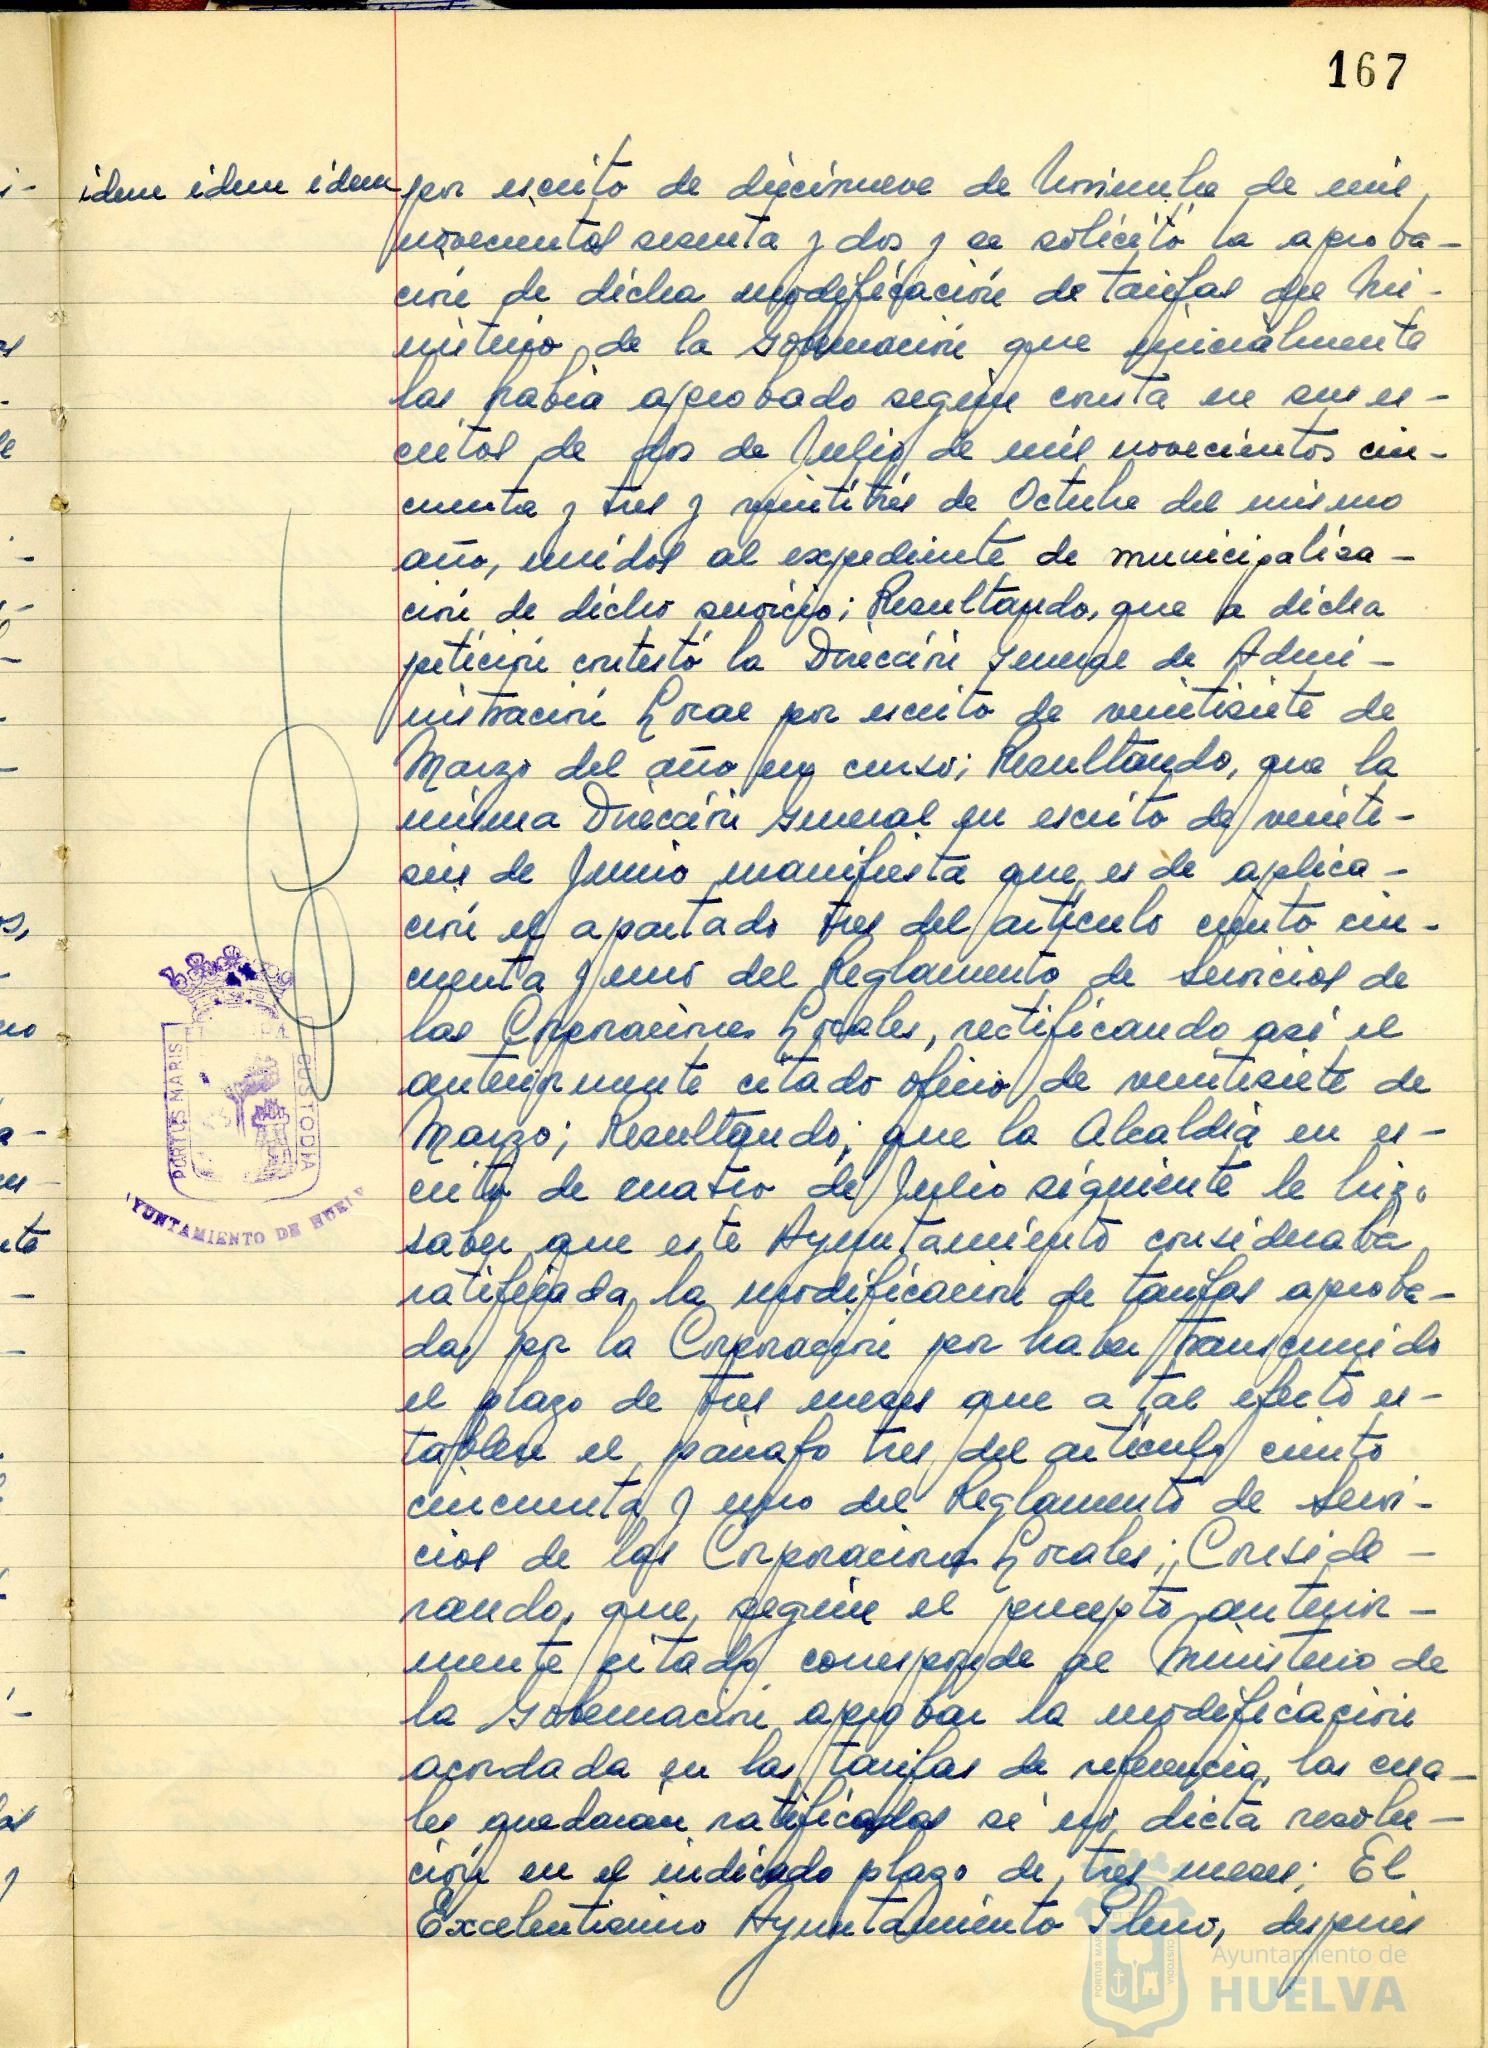 167
idem idem idem
por escrito de diecinueve de Noviembre de mil
novecientos sesenta y dos y se solicitó la aproba-
ción de dicha modificación de tarifas del Mi-
nisterio de la Gobernación que inicialmente
las había aprobado según consta en sus es-
critos de dos de Julio de mil novecientos cin-
cuenta y tres y veintitrés de Octubre del mismo
año, unidos al expediente de municipaliza-
ción de dicho servicio; Resultando, que a dicha
petición contestó la Dirección General de Admi-
nistración Local por escrito de veintisiete de
Marzo del año en curso; Resultando, que la
misma Dirección General en escrito de veinti-
seis de Junio manifiesta que es de aplica-
ción el apartado tres del artículo ciento cin-
cuenta y uno del Reglamento de Servicios de
las Corporaciones Locales, rectificando así el
anteriormente citado oficio de veintisiete de
Marzo; Resultando; que la Alcaldía en es-
crito de cuatro de Julio siguiente le hizo
saber que este Ayuntamiento consideraba
ratificada la modificación de tarifas aproba-
das por la Corporación por haber transcurrido
el plazo de tres meses que a tal efecto es-
tablece el párrafo tres del artículo ciento
cincuenta y uno del Reglamento de Servi-
cios de las Corporaciones Locales; Conside-
rando, que, según el precepto anterior-
mente citado corresponde al Ministerio de
la Gobernación aprobar la modificación
acordada en las tarifas de referencia, las cua-
les quedarán ratificadas si no dicta resolu-
ción en el indicado plazo de tres meses; El
Excelentísimo Ayuntamiento Pleno, después
PORTUS MARIS
CUSTODIA
AYUNTAMIENTO DE HUELVA
Ayuntamiento de
HUELVA